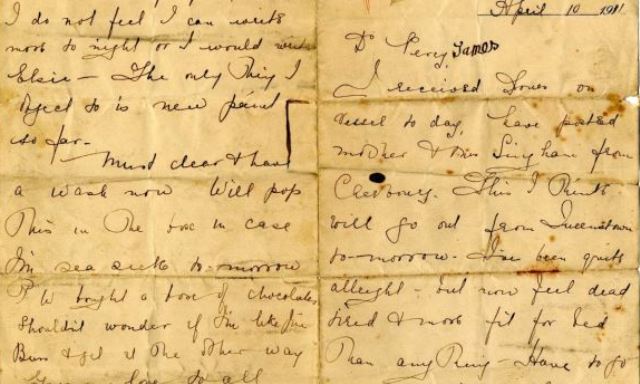 April 10 1911
Dr Percy James
I received yours on
vessel to day, have posted
mother & from
Cherbourg. This I think
will go out from Queenstown
to-morrow. I've been quite
allright - but now feel dead
tired & more fit for bed
than anything - Have to go
I do not feel I can write
more to night or I would write
Elsie - The only thing I
object to is new paint
so far.
Must clear & have
a wash now Will pop
this in the box in case
I'm sea sick to-morrow
P W bought a box of chocolates
Shouldn't wonder if I'm like Jim
& get it the other way
love to all